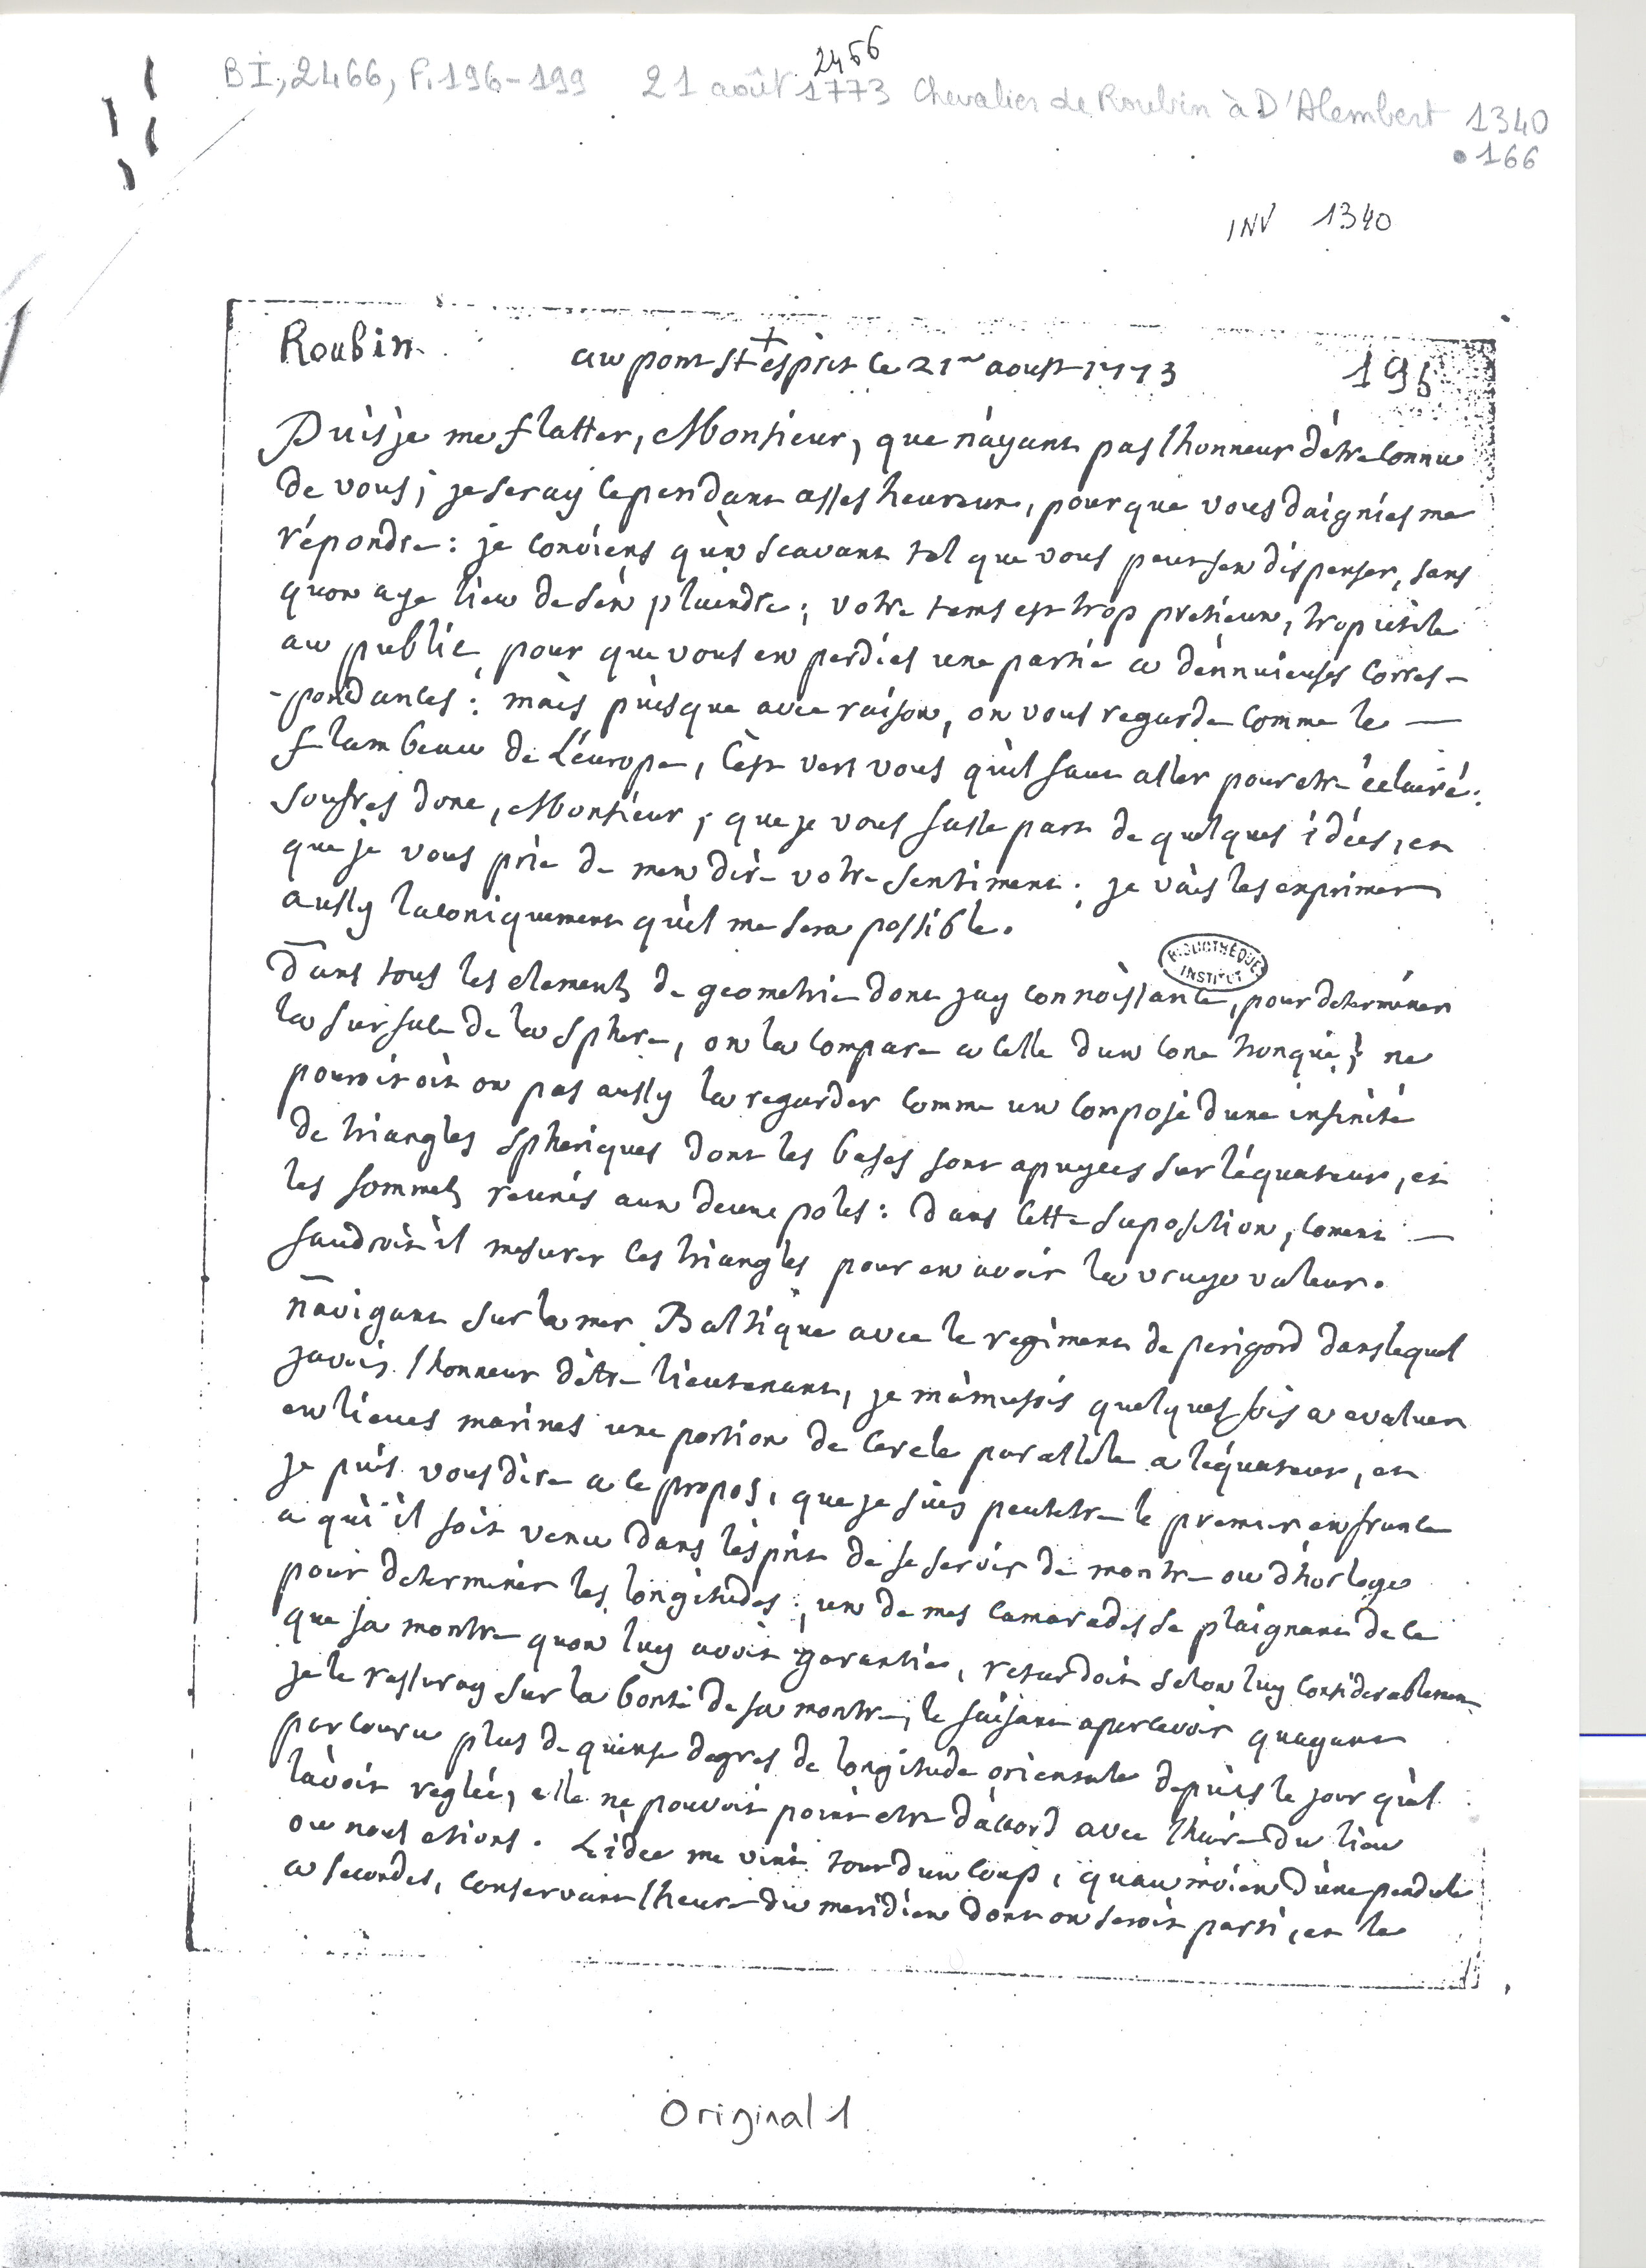 2466
BI, 2466, F. 196-199 21 août 1773 Chevalier de Roubin à D'Alembert 1340
166
INV 1340
Roubin
+
au pont St esprit le 21me aoust 1773
196
Puis je me flatter, Monsieur, que n'ayant pas lhonneur dêtre connu
de vous; je seray cependant asses heureux, pour que vous daigniés me
répondre: je conviens qu'un scavant tel que vous peut sen dispenser, sans
quon aye lieu de s'en plaindre; votre tems est trop pretieux, trop utile
au public, pour que vous en perdiés une partie a dennuieuses corres-
-pondances: mais puisque avec raison, on vous regarde comme le —
flambeau de L'europe, c'est vers vous qu'il faut aller pour etre éclairé:
soufrés donc, Monsieur, que je vous fasse part de quelques idées, et
que je vous prie de men dire votre sentiment: je vais les exprimer
aussy laconiquement qu'il me sera possible.
BIBLIOTHÈQUE
INSTITUT
Dans tous les elements de geometrie dont jay connoissance, pour determiner
la surface de la sphere, on la compare a celle dun cone tronqué; ne
pourroit on pas aussy la regarder comme un composé dune infinité
de triangles spheriques dont les bases sont apuyées sur léquateur, et
les sommets reunis aux deux poles: dans cette suposition, coment —
faudroit il mesurer ces triangles pour en avoir la vraye valeur.
navigant sur la mer Baltique avec le regiment de perigord dans lequel
javois lhonneur dêtre lieutenant, je m'amusois quelques fois a evaluer
en lieues marines une portion de cercle parallele a léquateur, et
je puis vous dire a ce propos, que je suis peutetre le premier en france
a qui il soit venu dans l'esprit de se servir de montre ou d'horloge
pour determiner les longitudes; un de mes camarades se plaignant de ce
que sa montre quon luy avoit garantie, retardoit selon luy considerablement
je le rassuray sur la bonté de sa montre, le faisant apercevoir quayant
parcouru plus de quinse degres de longitude orientale depuis le jour qu'il
lavoit reglée, elle ne pouvoit point etre d'accord avec lheure du lieu
ou nous etions. L'idée me vint tout dun coup, quau moien d'une pendule
a secondes, conservant lheure du meridien dont on seroit parti, et le
Original 1